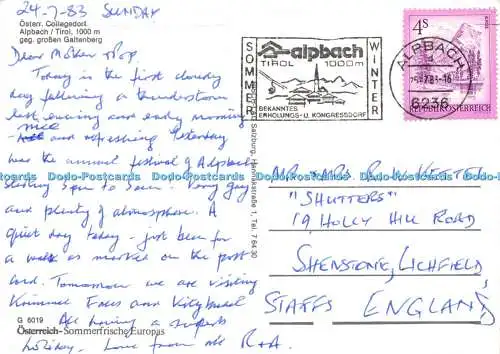 24-7-83 SUNDAY
Österr. Collegedorf
Alpbach / Tirol, 1000 m
geg. großen Galtenberg
Dear Mother & Pop,
Today is the first cloudy
day following a thunderstorm
last evening and early morning
nice
- and refreshing. Yesterday
was the annual festival of Alpbach
starting 5pm to 5am. Very gay
and plenty of atmosphere. A
quiet day today - just been for
a walk as marked on the post
card. Tomorrow we are visiting
Krimmel Falls and Kitzbuhel
All having a superb
holiday. Love from all R+A.
G 6019
Österreich-Sommerfrische Europas
Salzburg, Hannakstraße 1, Tel. 7 64 30
SOMMER
alpbach
TIROL 1000m
BEKANNTES
ERHOLUNGS-U. KONGRESSDORF
WINTER
4S
REPUBLIK ÖSTERREICH
ALPBACH
25.-7.83-18
6236
MR & MRS R.W. KETTER
"SHUTTERS"
19 HOLLY HILL ROAD
SHENSTONE, LICHFIELD
STAFFS ENGLAND
Dodo-Postcards Dodo-Postcards Dodo-Postcards Dodo-Postcards Dodo-Postcards